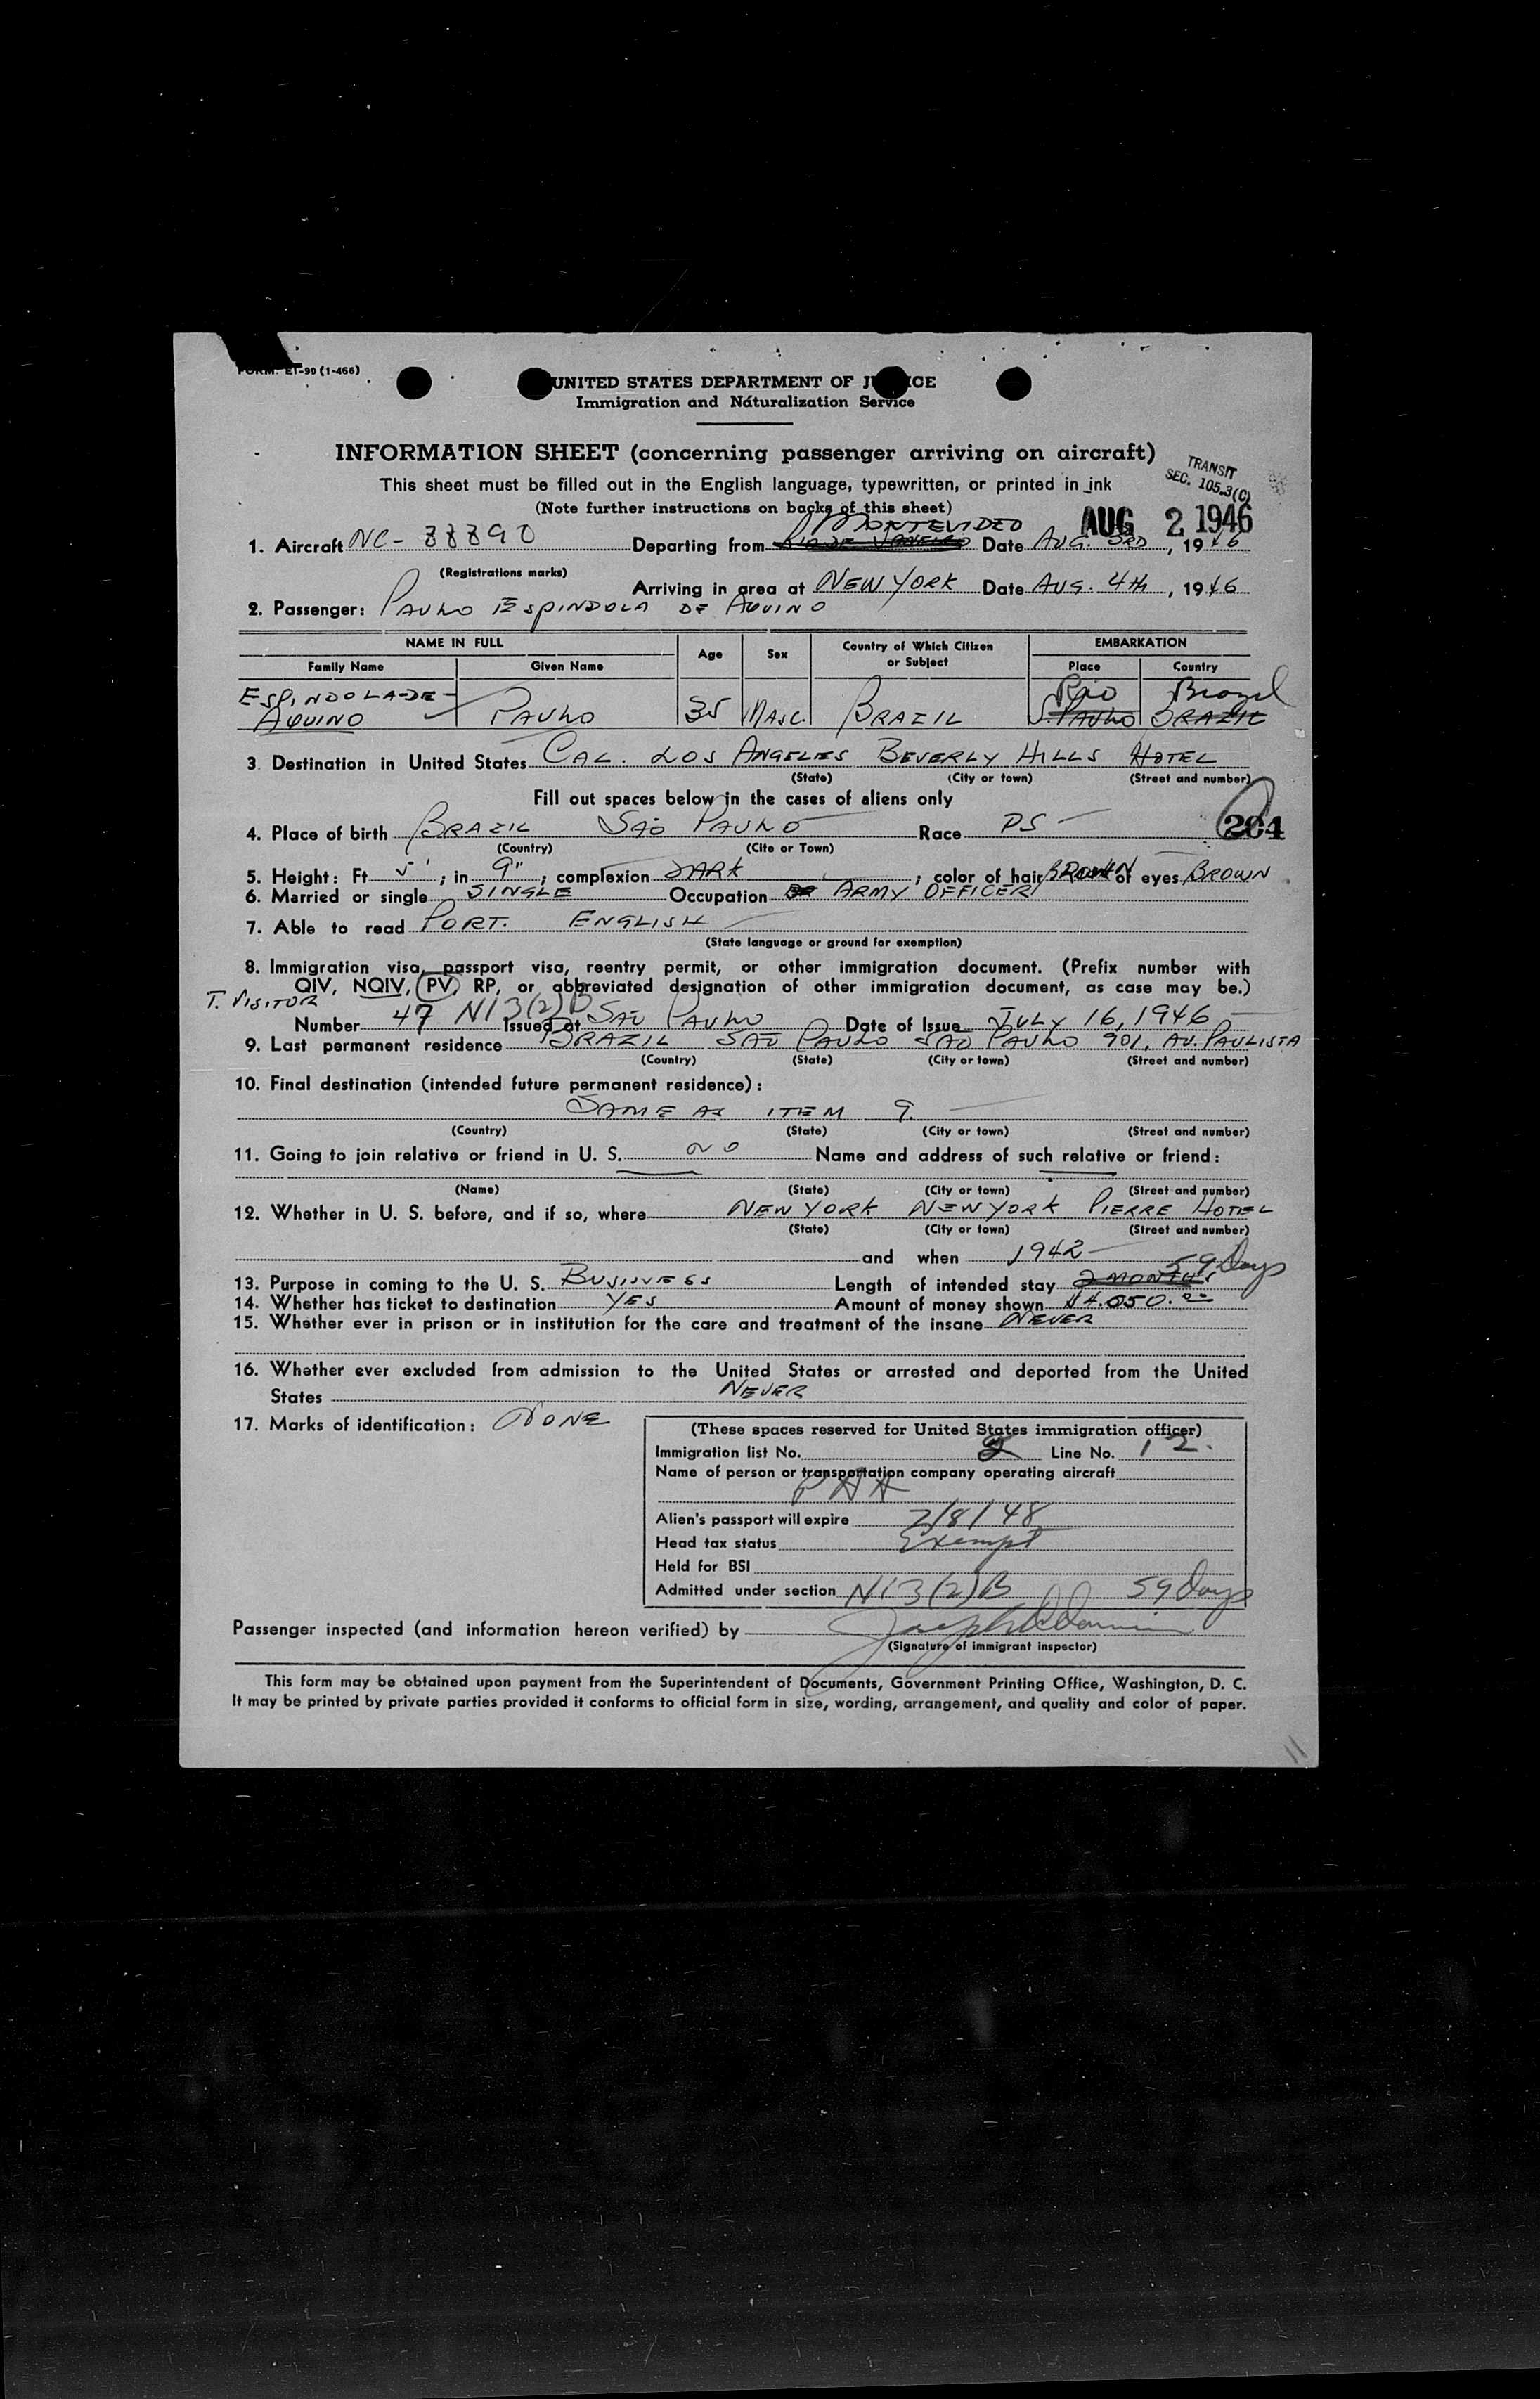 FORM. ET-99 (1-466)
UNITED STATES DEPARTMENT OF J ICE
Immigration and Naturalization Service
INFORMATION SHEET (concerning passenger arriving on aircraft)
TRANSIT
SEC. 105.3(C)
This sheet must be filled out in the English language, typewritten, or printed in ink
(Note further instructions on backs of this sheet)
AUG 2 1946
MONTEVIDEO
1. Aircraft NC-88890 Departing from RIO DE JANEIRO Date AUG. 3RD, 1946
(Registrations marks)
Arriving in area at NEW YORK Date AUG. 4th, 1946
2. Passenger: PAULO ESPINDOLA DE AQUINO
NAME IN FULL Age Sex Country of Which Citizen or Subject EMBARKATION
Family Name Given Name Place Country
ESPINDOLA-DE- Rio Brazil
AQUINO PAULO 35 MASC. BRAZIL S. PAULO BRAZIL
3. Destination in United States CAL. LOS ANGELES BEVERLY HILLS HOTEL
(State) (City or town) (Street and number)
Fill out spaces below in the cases of aliens only
4. Place of birth BRAZIL SAO PAULO Race PS 264
(Country) (Cite or Town)
5. Height: Ft 5'; in 9"; complexion DARK; color of hair BROWN of eyes BROWN
6. Married or single SINGLE Occupation ARMY OFFICER
7. Able to read PORT. ENGLISH
(State language or ground for exemption)
8. Immigration visa, passport visa, reentry permit, or other immigration document. (Prefix number with
QIV, NQIV, PV, RP, or abbreviated designation of other immigration document, as case may be.)
T. VISITOR
Number 47 NI3(2)B Issued at SAO PAULO Date of Issue JULY 16, 1946
9. Last permanent residence BRAZIL SAO PAULO SAO PAULO 901, AV. PAULISTA
(Country) (State) (City or town) (Street and number)
10. Final destination (intended future permanent residence):
SAME AS ITEM 9.
(Country) (State) (City or town) (Street and number)
11. Going to join relative or friend in U. S. NO Name and address of such relative or friend:
(Name) (State) (City or town) (Street and number)
12. Whether in U. S. before, and if so, where NEW YORK NEW YORK PIERRE HOTEL
(State) (City or town) (Street and number)
and when 1942
59 Days
13. Purpose in coming to the U. S. BUSINESS Length of intended stay 2 MONTHS
14. Whether has ticket to destination YES Amount of money shown $4.050.00
15. Whether ever in prison or in institution for the care and treatment of the insane NEVER
16. Whether ever excluded from admission to the United States or arrested and deported from the United
States NEVER
17. Marks of identification: NONE
(These spaces reserved for United States immigration officer)
Immigration list No. 2 Line No. 12.
Name of person or transportation company operating aircraft
PAA
Alien's passport will expire 2/8/48
Head tax status Exempt
Held for BSI
Admitted under section NI3(2)B 59 days
Passenger inspected (and information hereon verified) by
(Signature of immigrant inspector)
This form may be obtained upon payment from the Superintendent of Documents, Government Printing Office, Washington, D. C.
It may be printed by private parties provided it conforms to official form in size, wording, arrangement, and quality and color of paper.
11